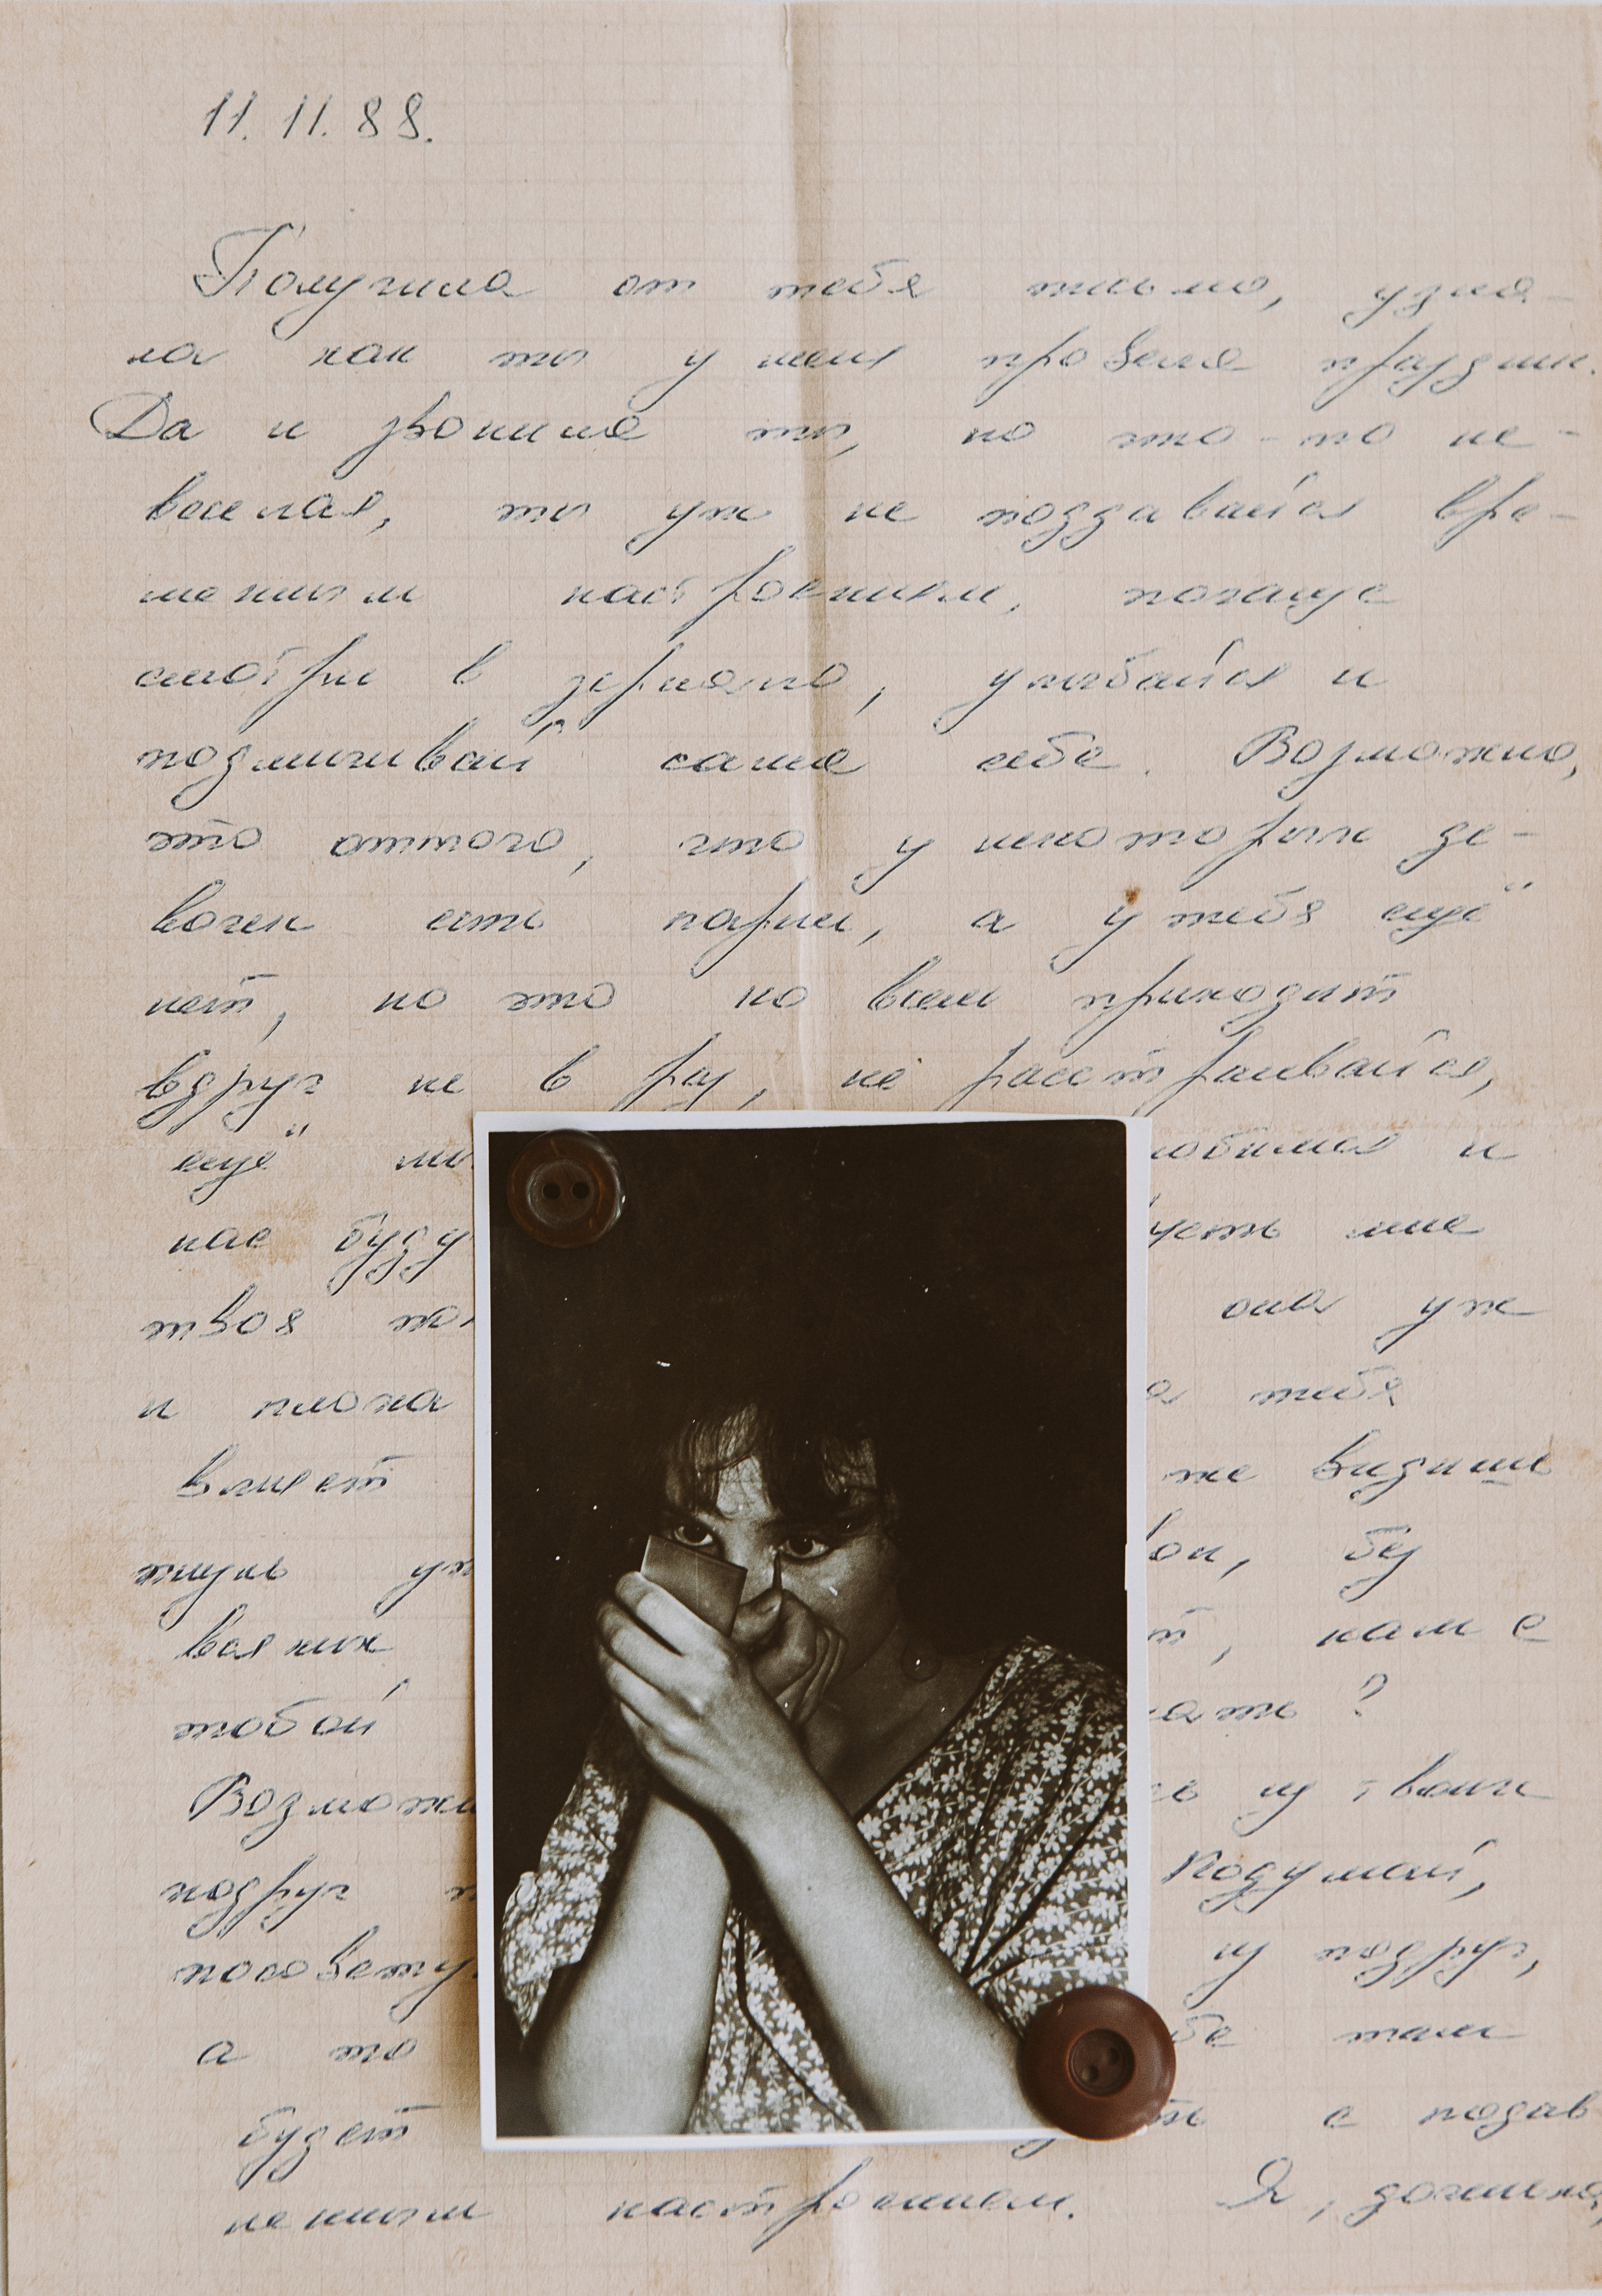 11.11.88.
Получила от тебя письмо, узна-
ла как ты у меня провела праздник.
Да и звонила ты, но что-то не-
веселая, ты уж не поддавайся вре-
менным настроениям, почаще
смотри в зеркало, улыбайся и
подмигивай сама себе. Возможно,
это оттого, что у некоторых де-
вочек есть парни, а у тебя ещё
нет, но это ко всем приходит
вдруг не в раз, не расстраивайся,
ещё
нас буду мне
твоя она уж
и плоха тебя
влияет же видишь
чушь
всяких нам с
тобой ?
Возможн из твоих
подруг Подумай,
посовету из подруг,
а то там
будет с подав
ленным настроением. Я, доченька,